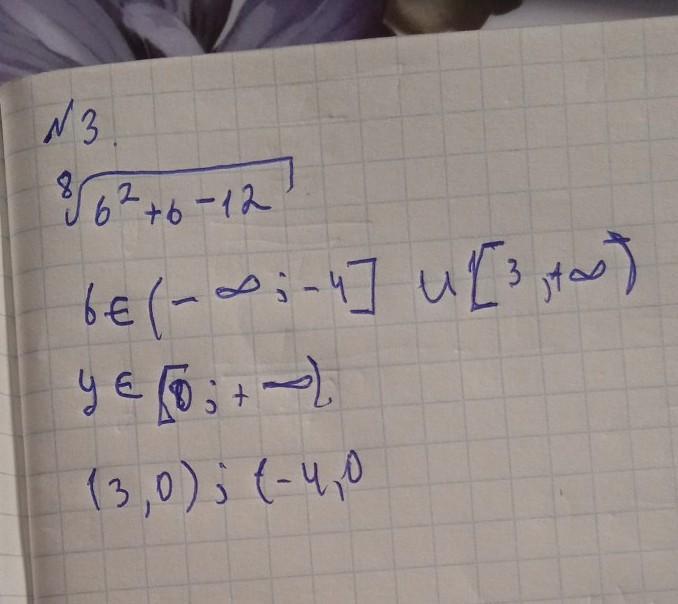 №3.
⁸√(b²+b-12)
b∈(-∞;-4] ∪ [3,+∞)
y∈[0;+∞)
(3,0);(-4,0